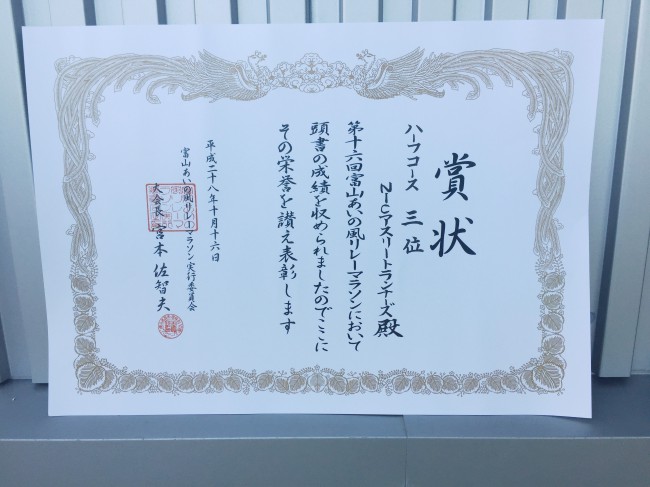 賞状
ハーフコース 三位
NiCアスリートランナーズ殿
第十六回富山あいの風リレーマラソンにおいて
頭書の成績を収められましたのでここに
その栄誉を讃え表彰します
平成二十八年十月十六日
富山あいの風リレーマラソン実行委員会
大会長 宮本佐智夫